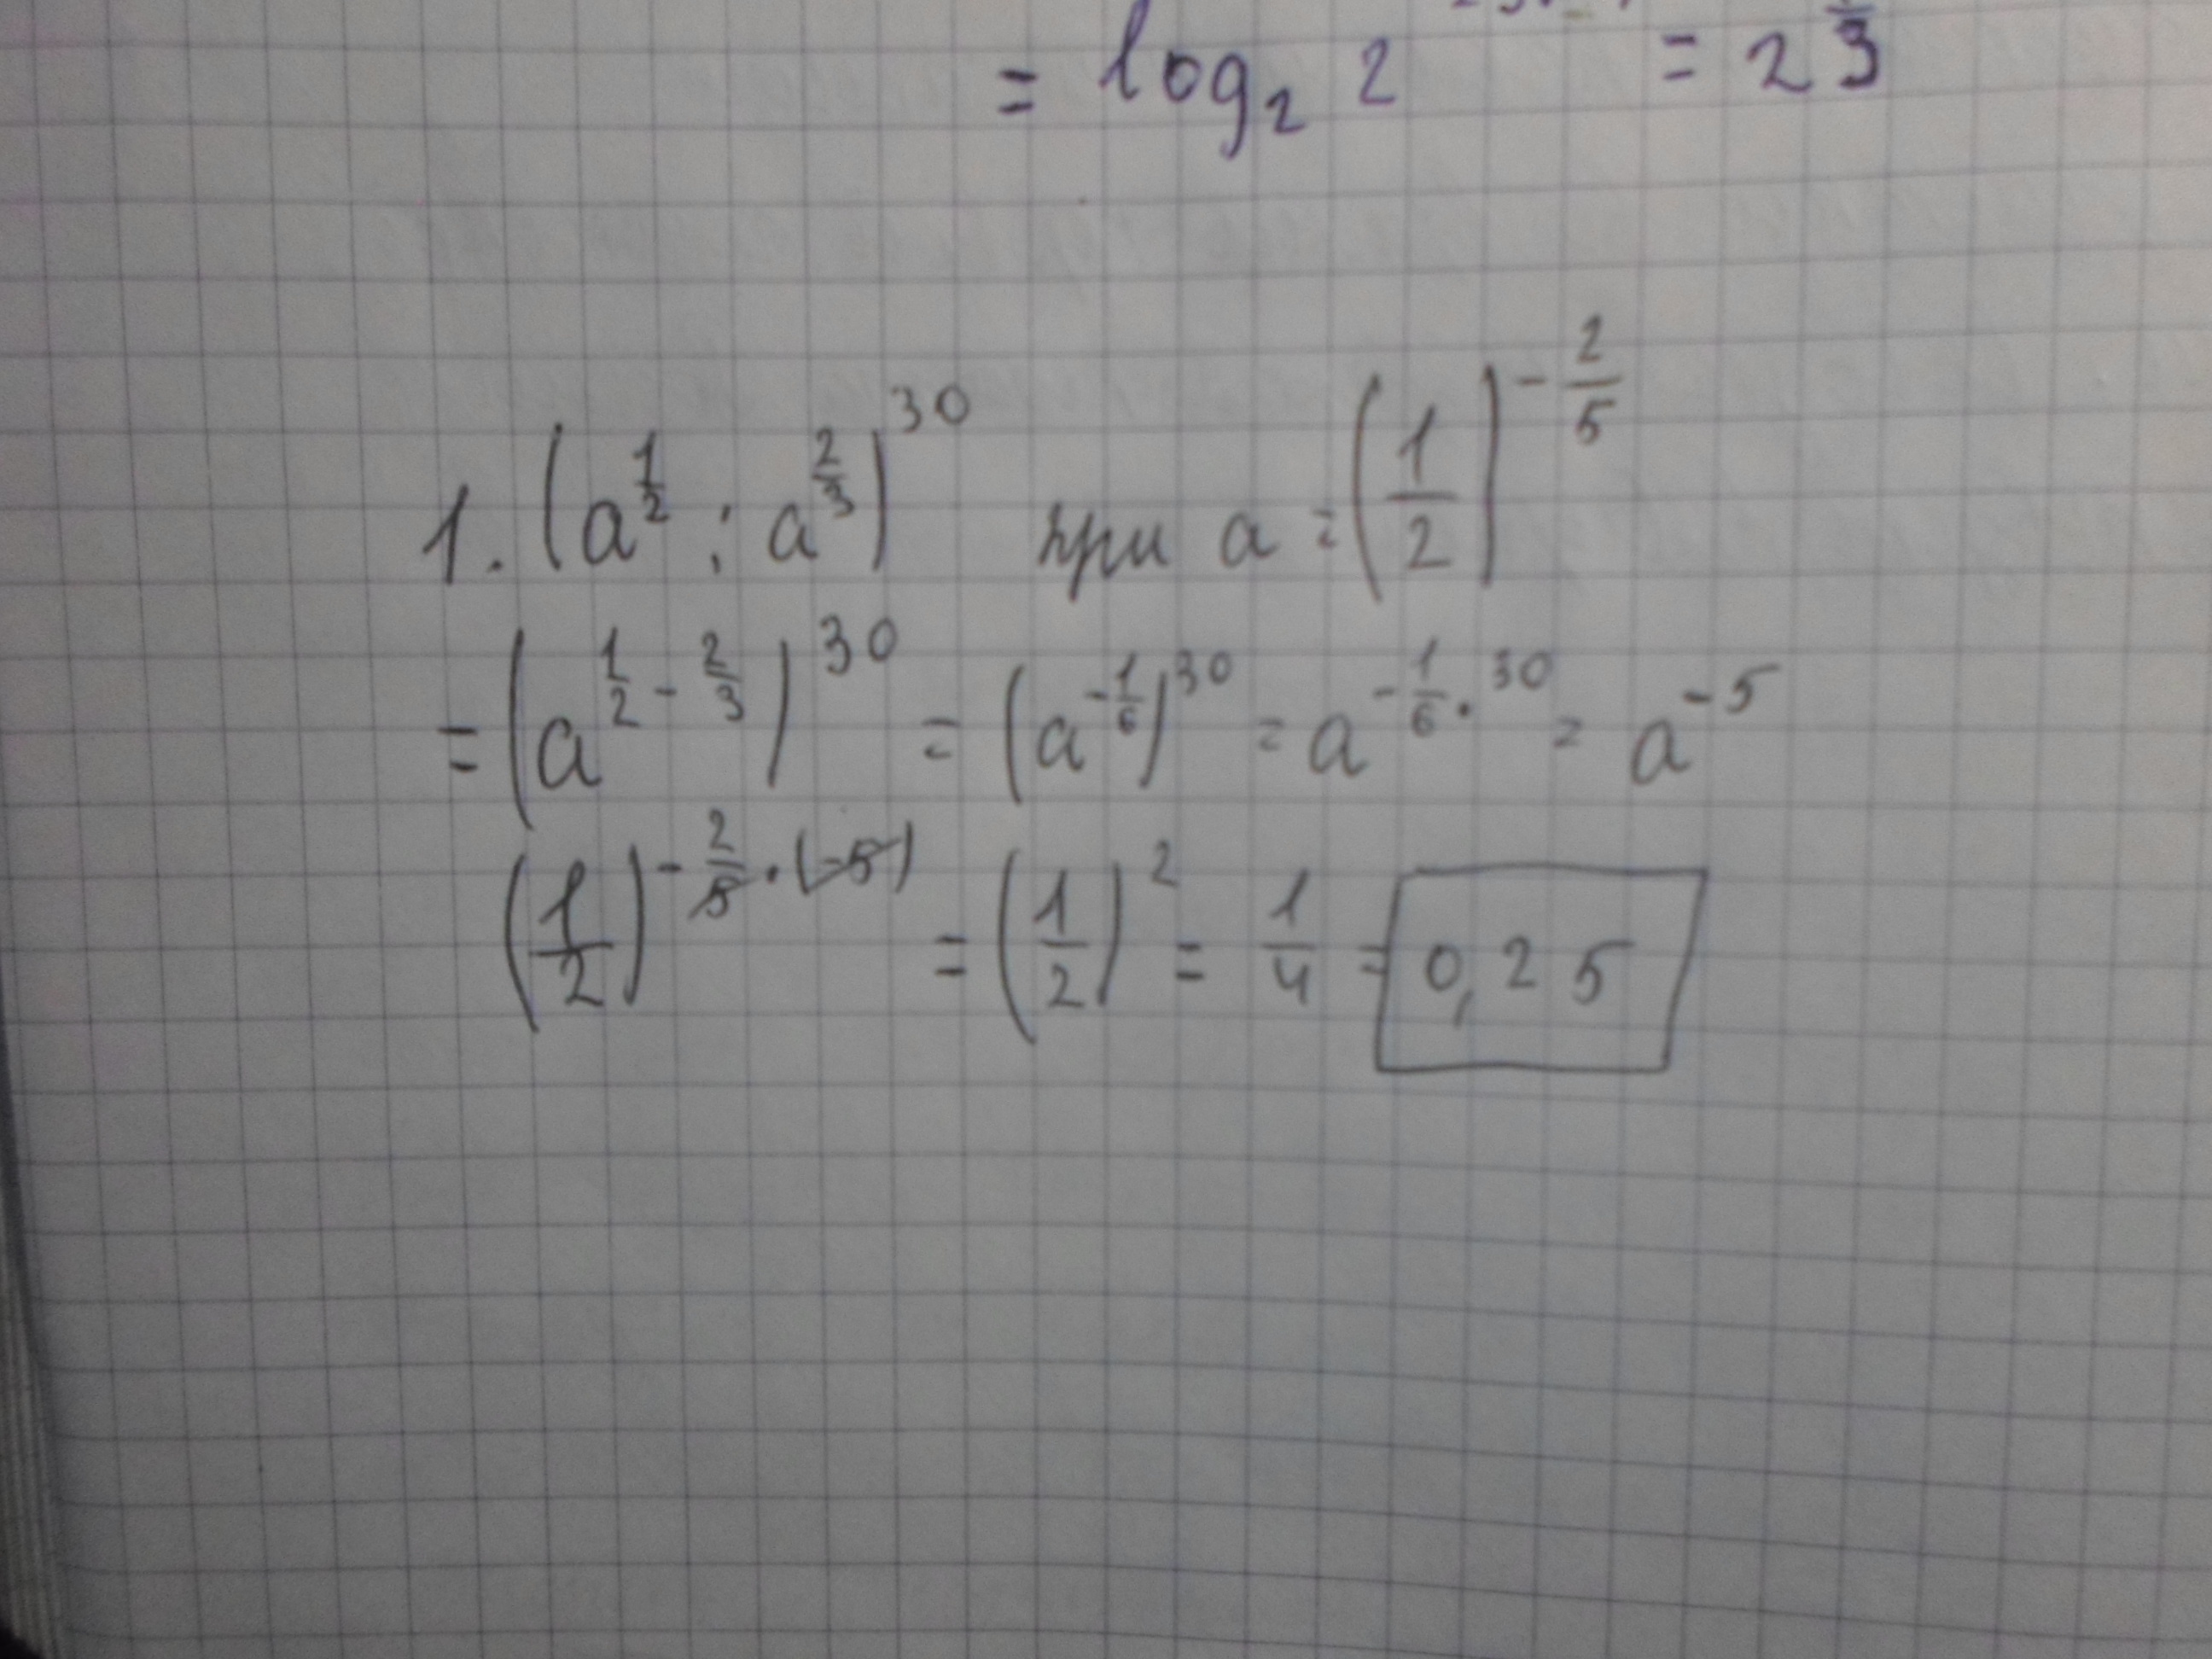 = log₂ 2 = 2 3
1. (a^(1/2) : a^(2/3))^30 при a = (1/2)^(-2/5)
= (a^(1/2 - 2/3))^30 = (a^(-1/6))^30 = a^(-1/6 · 30) = a^(-5)
(1/2)^(-2/5 · (-5)) = (1/2)^2 = 1/4 = 0,25